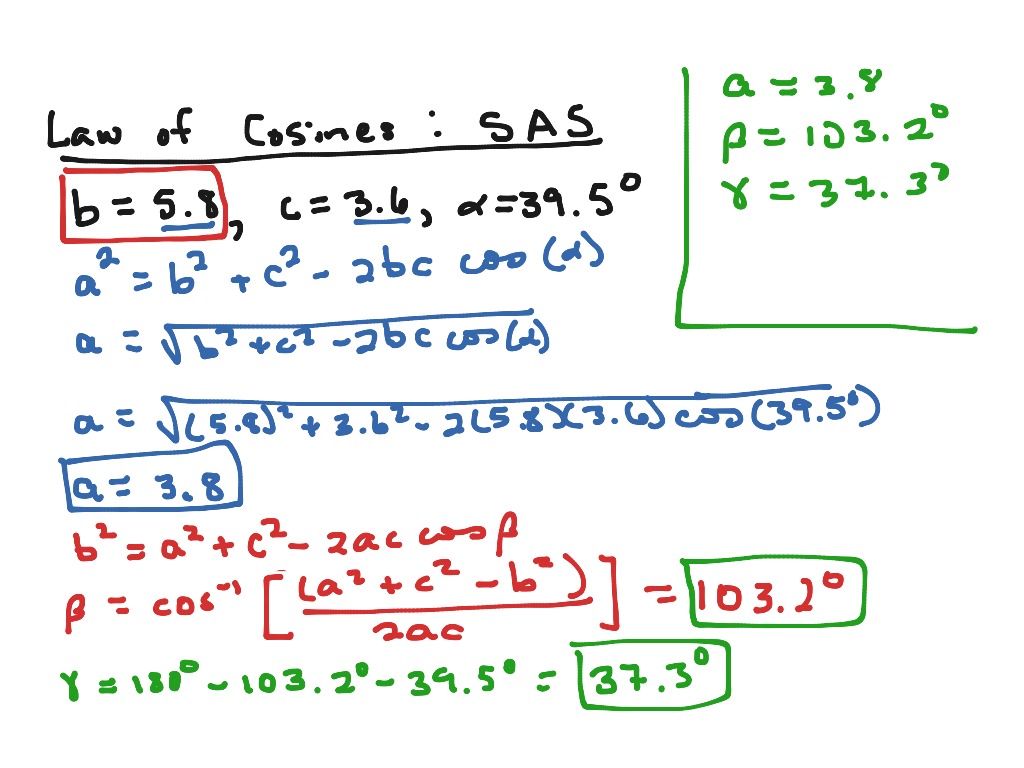 Law of Cosines : SAS
b = 5.8, c = 3.6, α = 39.5°
a² = b² + c² - 2bc cos (α)
a = √b² + c² - 2bc cos(α)
a = √(5.8)² + 3.6² - 2(5.8)(3.6) cos(39.5°)
a = 3.8
b² = a² + c² - 2ac cos β
β = cos⁻¹ [(a² + c² - b²) / 2ac] = 103.2°
γ = 180° - 103.2° - 39.5° = 37.3°
a = 3.8
β = 103.2°
γ = 37.3°